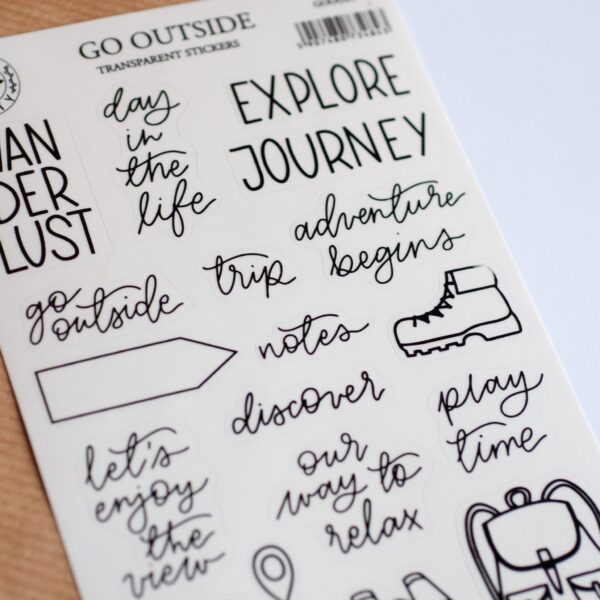 GO OUTSIDE
TRANSPARENT STICKERS
day
in
the
life
EXPLORE
JOURNEY
DER
LUST
adventure
begins
go
outside
trip
notes
discover
play
time
let's
enjoy
the
view
our
way to
relax